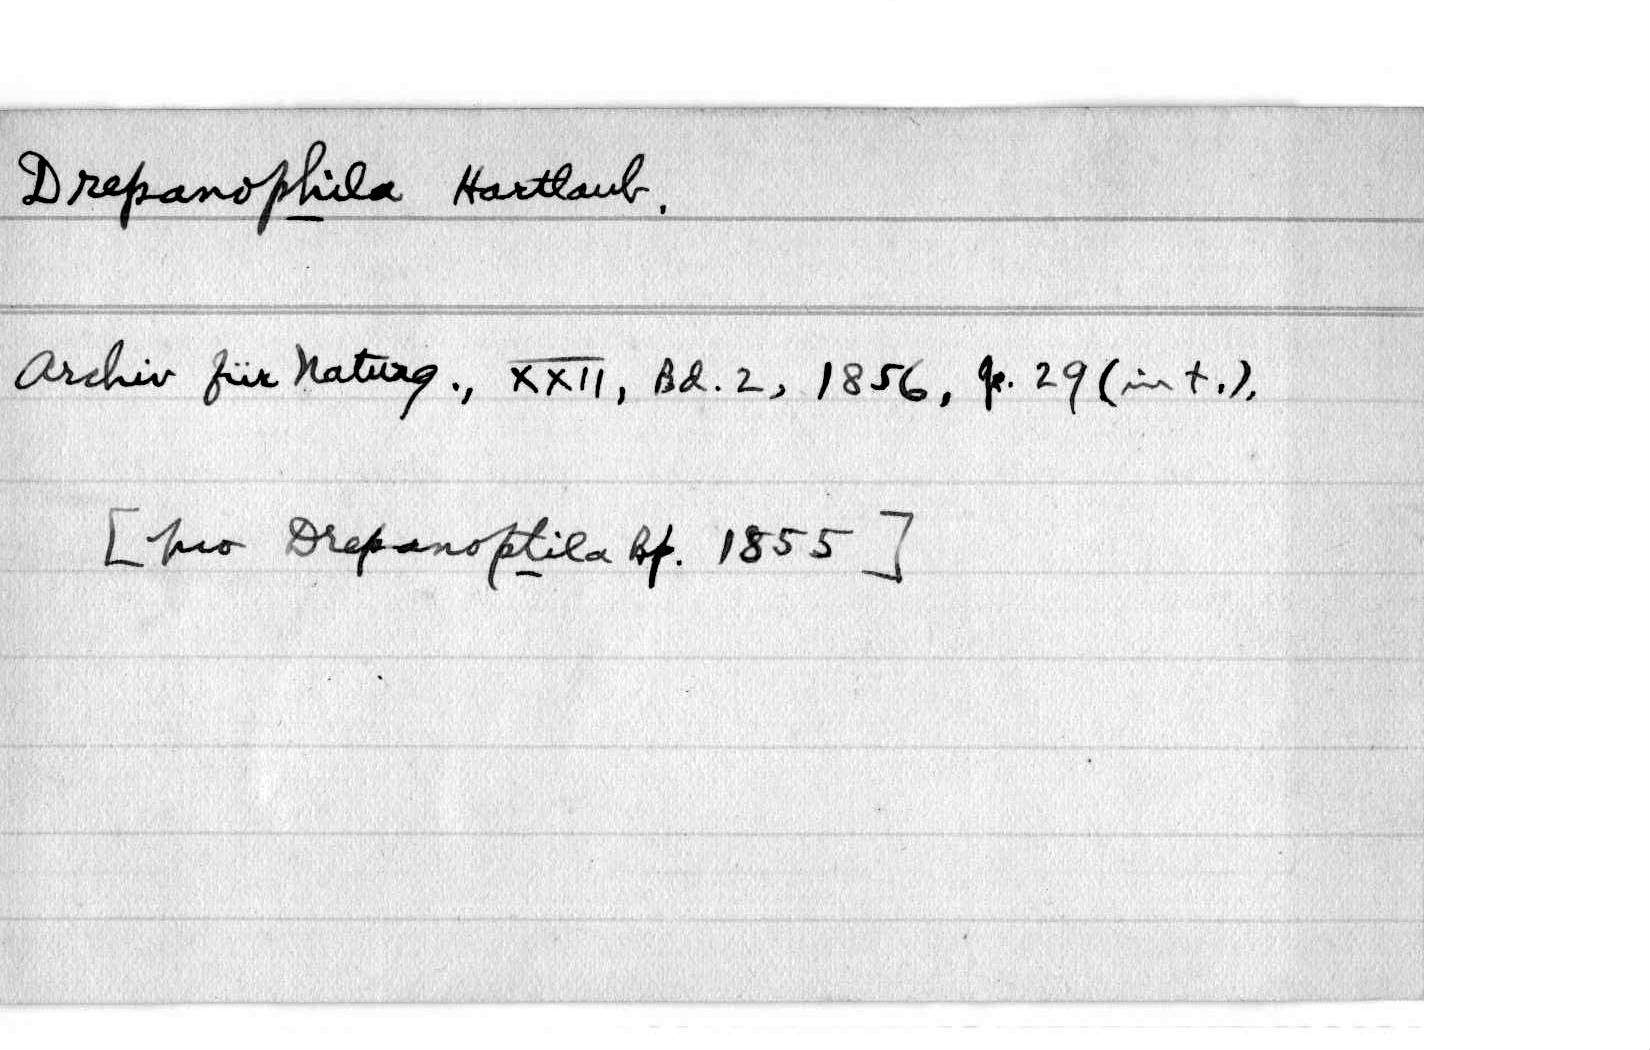 Drepanophila Hartlaub.
Archiv für Naturg., XXII, Bd. 2, 1856, p. 29 (in t.).
[pro Drepanoptila Bp. 1855]